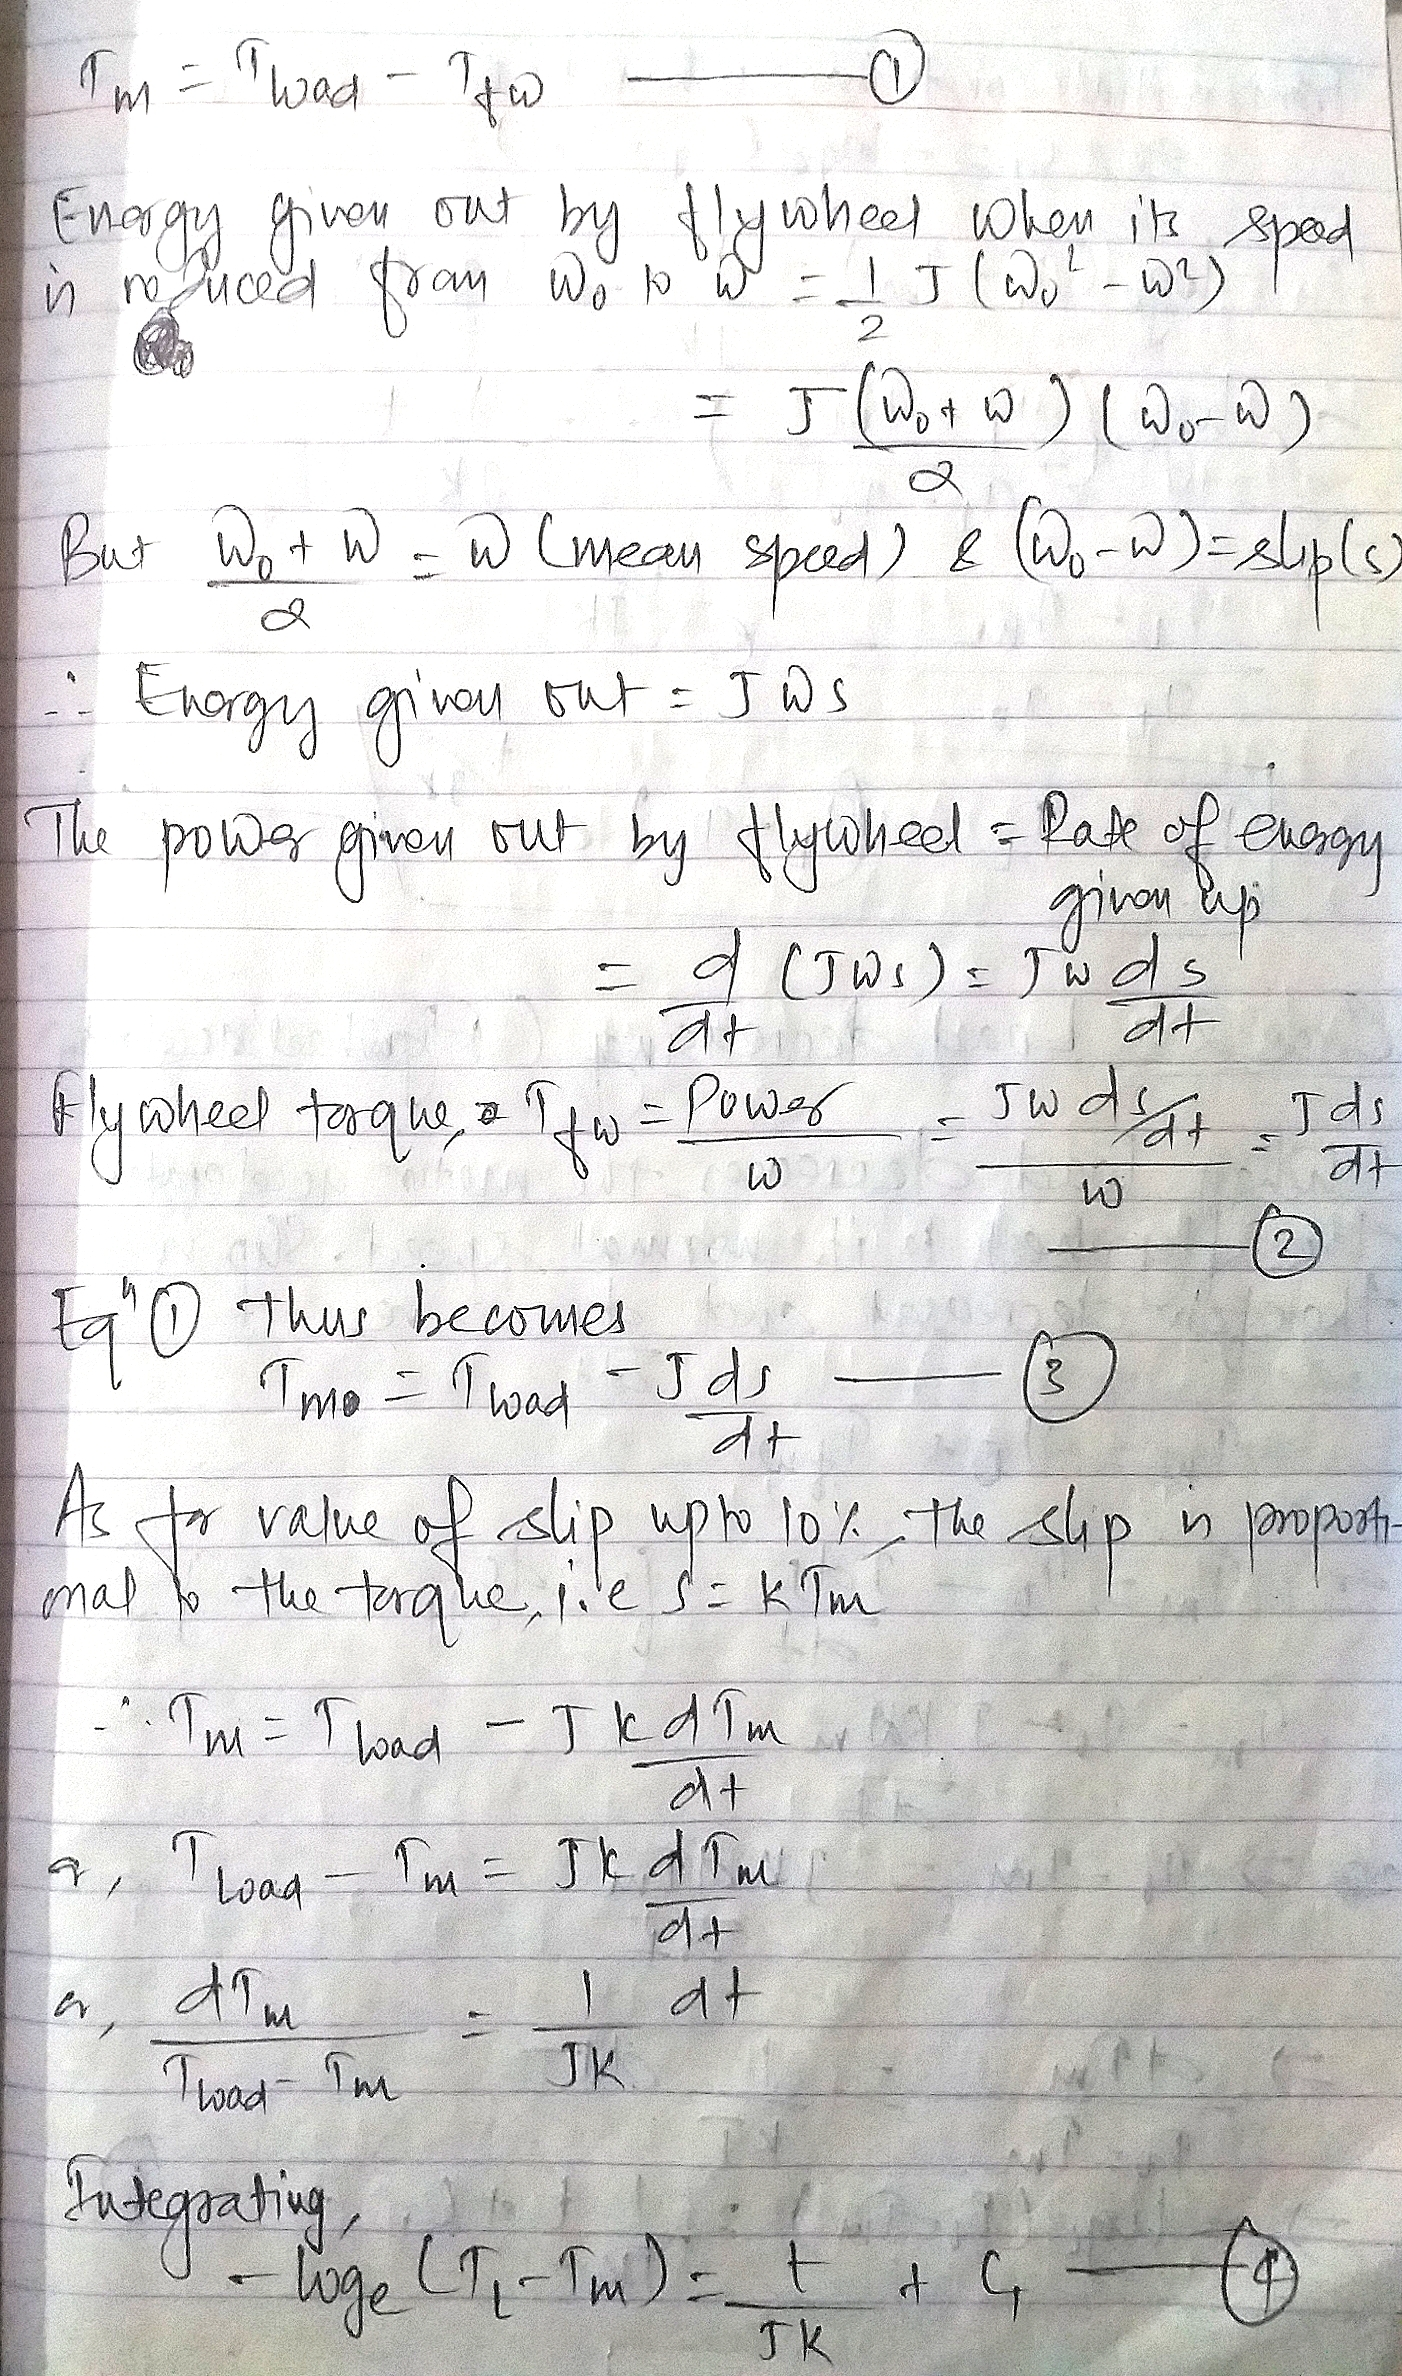 Tm = Tload - Tfw ——— ①
Energy given out by flywheel when its speed
is reduced from ω₀ to ω = 1/2 J (ω₀² - ω²)
= J (ω₀ + ω)/2 (ω₀ - ω)
But (ω₀ + ω)/2 = ω (mean speed) & (ω₀ - ω) = slip(s)
∴ Energy given out = Jωs
The power given out by flywheel = Rate of energy
given up
= d/dt (Jωs) = Jω ds/dt
Flywheel torque, Tfw = Power/ω = (Jω ds/dt)/ω = J ds/dt
——— ②
Eqⁿ ① thus becomes
Tm = Tload - J ds/dt ——— ③
As for value of slip upto 10%, the slip is proporti-
onal to the torque, i.e s = KTm
∴ Tm = Tload - JK dTm/dt
or, TLoad - Tm = JK dTm/dt
or, dTm/(Tload - Tm) = 1/JK dt
Integrating,
- loge (TL - Tm) = t/JK + C₁ ——— ④